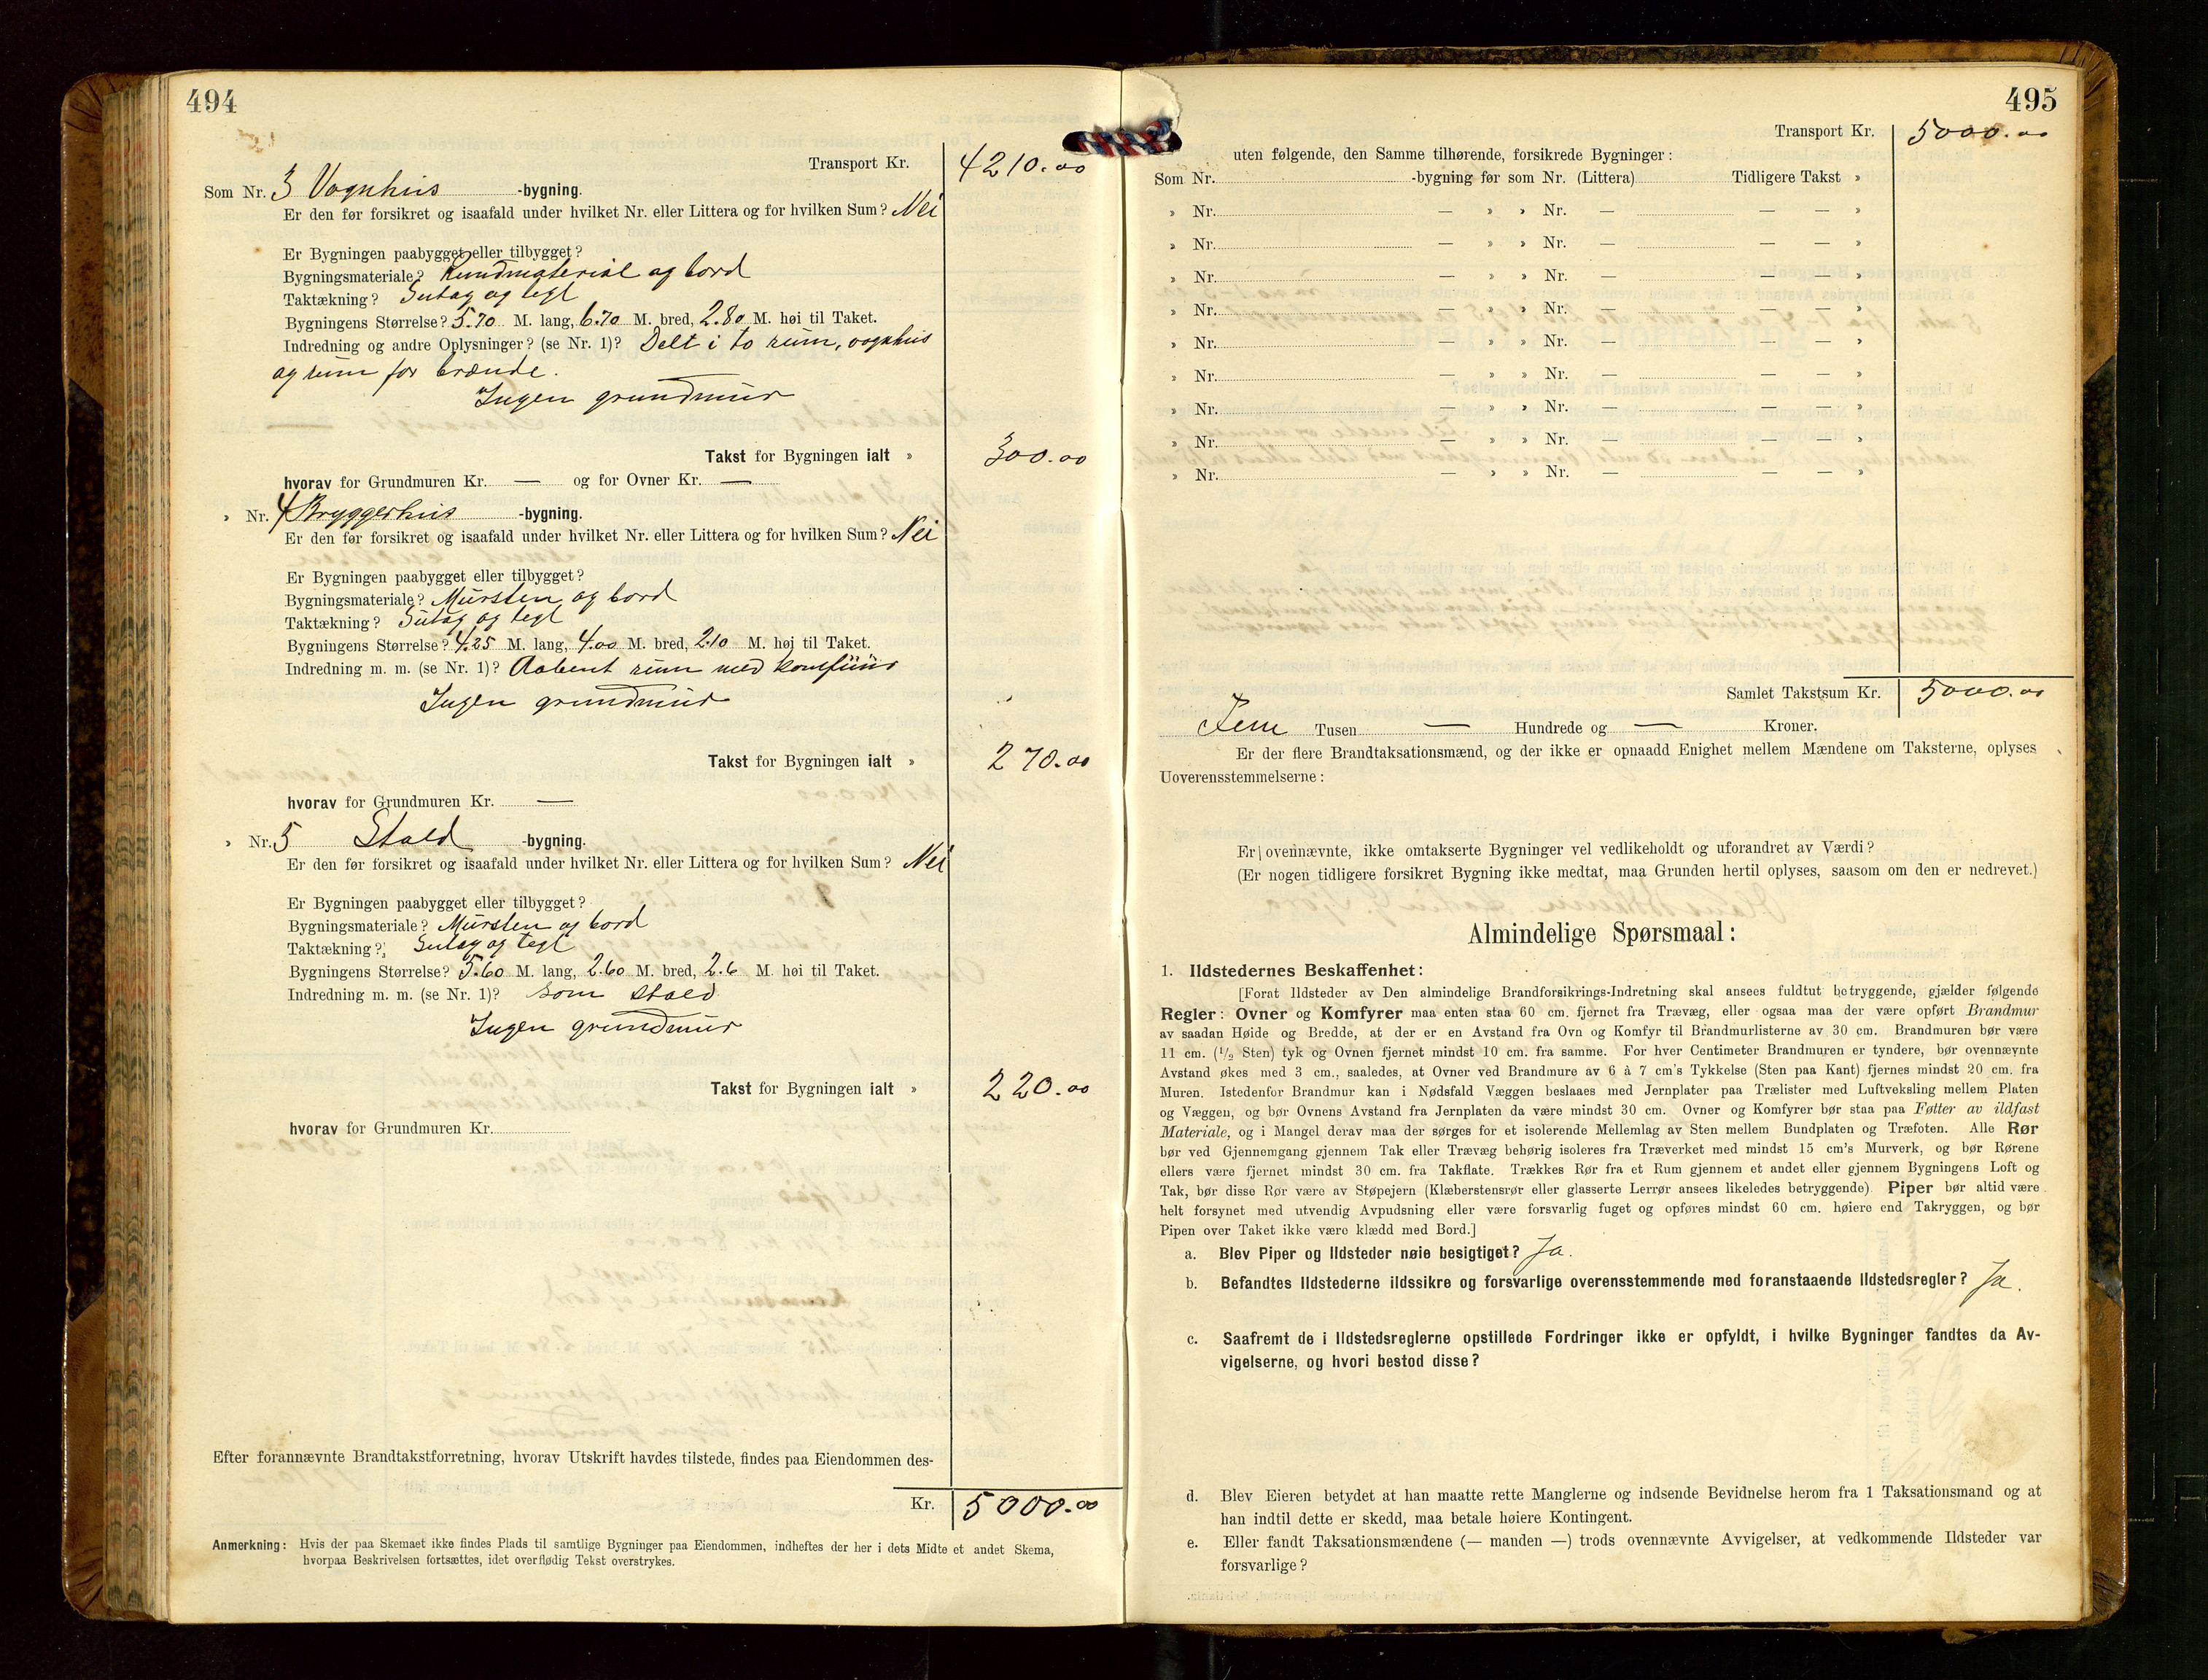 494
Transport Kr. 4210.00
Som Nr. 3 Vognhus -bygning.
Er den før forsikret og isaafald under hvilket Nr. eller Littera og for hvilken Sum? Nei
Er Bygningen paabygget eller tilbygget?
Bygningsmateriale? Rundmaterial og bord
Taktækning? Sutag og tegl
Bygningens Størrelse? 5.70 M. lang, 6.70 M. bred, 2.80 M. høi til Taket.
Indredning og andre Oplysninger? (se Nr. 1)? Delt i to rum, vognhus
og rum for brænde.
Ingen grundmur
Takst for Bygningen ialt » 300.00
hvorav for Grundmuren Kr. — og for Ovner Kr. —
» Nr. 4 Bryggerhus -bygning.
Er den før forsikret og isaafald under hvilket Nr. eller Littera og for hvilken Sum? Nei
Er Bygningen paabygget eller tilbygget?
Bygningsmateriale? Mursten og bord
Taktækning? Sutag og tegl
Bygningens Størrelse? 4.25 M. lang, 4.00 M. bred, 2.10 M. høj til Taket.
Indredning m. m. (se Nr. 1)? Aabent rum med komfuur
Ingen grundmur
Takst for Bygningen ialt » 270.00
hvorav for Grundmuren Kr. —
» Nr. 5 Stald -bygning.
Er den før forsikret og isaafald under hvilket Nr. eller Littera og for hvilken Sum? Nei
Er Bygningen paabygget eller tilbygget?
Bygningsmateriale? Mursten og bord
Taktækning? Sutag og tegl
Bygningens Størrelse? 5.60 M. lang, 2.60 M. bred, 2.6 M. høi til Taket.
Indredning m. m. (se Nr. 1)? som stald
Ingen grundmur
Takst for Bygningen ialt » 220.00
hvorav for Grundmuren Kr.
Efter forannævnte Brandtakstforretning, hvorav Utskrift havdes tilstede, findes paa Eiendommen des-
Kr. 5000.00
Anmerkning: Hvis der paa Skemaet ikke findes Plads til samtlige Bygninger paa Eiendommen, indheftes der her i dets Midte et andet Skema,
hvorpaa Beskrivelsen fortsættes, idet overflødig Tekst overstrykes.
495
Transport Kr. 5000.00
uten følgende, den Samme tilhørende, forsikrede Bygninger:
Som Nr. -bygning før som Nr. (Littera) Tidligere Takst »
» Nr. — » » Nr. — — — »
» Nr. — » » Nr. — — — »
» Nr. — » » Nr. — — — »
» Nr. — » » Nr. — — — »
» Nr. — » » Nr. — — — »
» Nr. — » » Nr. — — — »
» Nr. — » » Nr. — — — »
» Nr. — » » Nr. — — — »
» Nr. — » » Nr. — — — »
Samlet Takstsum Kr. 5000.00
Fem Tusen — Hundrede og — Kroner.
Er der flere Brandtaksationsmænd, og der ikke er opnaadd Enighet mellem Mændene om Taksterne, oplyses
Uoverensstemmelserne:
Er ovennævnte, ikke omtakserte Bygninger vel vedlikeholdt og uforandret av Værdi?
(Er nogen tidligere forsikret Bygning ikke medtat, maa Grunden hertil oplyses, saasom om den er nedrevet.)
Almindelige Spørsmaal:
1. Ildstedernes Beskaffenhet:
[Forat Ildsteder av Den almindelige Brandforsikrings-Indretning skal ansees fuldtut betryggende, gjælder følgende
Regler: Ovner og Komfyrer maa enten staa 60 cm. fjernet fra Trævæg, eller ogsaa maa der være opført Brandmur
av saadan Høide og Bredde, at der er en Avstand fra Ovn og Komfyr til Brandmurlisterne av 30 cm. Brandmuren bør være
11 cm. (1/2 Sten) tyk og Ovnen fjernet mindst 10 cm. fra samme. For hver Centimeter Brandmuren er tyndere, bør ovennævnte
Avstand økes med 3 cm., saaledes, at Ovner ved Brandmure av 6 à 7 cm's Tykkelse (Sten paa Kant) fjernes mindst 20 cm. fra
Muren. Istedenfor Brandmur kan i Nødsfald Væggen beslaaes med Jernplater paa Trælister med Luftveksling mellem Platen
og Væggen, og bør Ovnens Avstand fra Jernplaten da være mindst 30 cm. Ovner og Komfyrer bør staa paa Føtter av ildfast
Materiale, og i Mangel derav maa der sørges for et isolerende Mellemlag av Sten mellem Bundplaten og Træfoten. Alle Rør
bør ved Gjennemgang gjennem Tak eller Trævæg behørig isoleres fra Træverket med mindst 15 cm's Murverk, og bør Rørene
ellers være fjernet mindst 30 cm. fra Takflate. Trækkes Rør fra et Rum gjennem et andet eller gjennem Bygningens Loft og
Tak, bør disse Rør være av Støpejern (Klæberstensrør eller glasserte Lerrør ansees likeledes betryggende) Piper bør altid være
helt forsynet med utvendig Avpudsning eller være forsvarlig fuget og opføres mindst 60 cm. høiere end Takryggen, og bør
Pipen over Taket ikke være klædd med Bord.]
a. Blev Piper og Ildsteder nøie besigtiget? Ja.
b. Befandtes Ildstederne ildssikre og forsvarlige overensstemmende med foranstaaende Ildstedsregler? Ja.
c. Saafremt de i Ildstedsreglerne opstillede Fordringer ikke er opfyldt, i hvilke Bygninger fandtes da Av-
vigelserne, og hvori bestod disse?
d. Blev Eieren betydet at han maatte rette Manglerne og indsende Bevidnelse herom fra 1 Taksationsmand og at
han indtil dette er skedd, maa betale høiere Kontingent.
e. Eller fandt Taksationsmændene (— manden —) trods ovennævnte Avvigelser, at vedkommende Ildsteder var
forsvarlige?